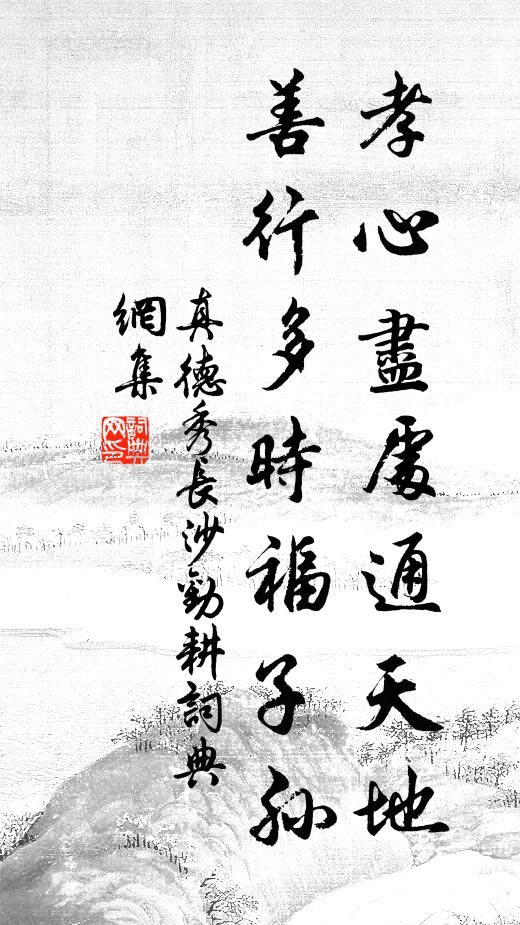 孝心盡處通天地
善行多時福子孫
真德秀長沙勸耕詞典
網集
詞典
网印